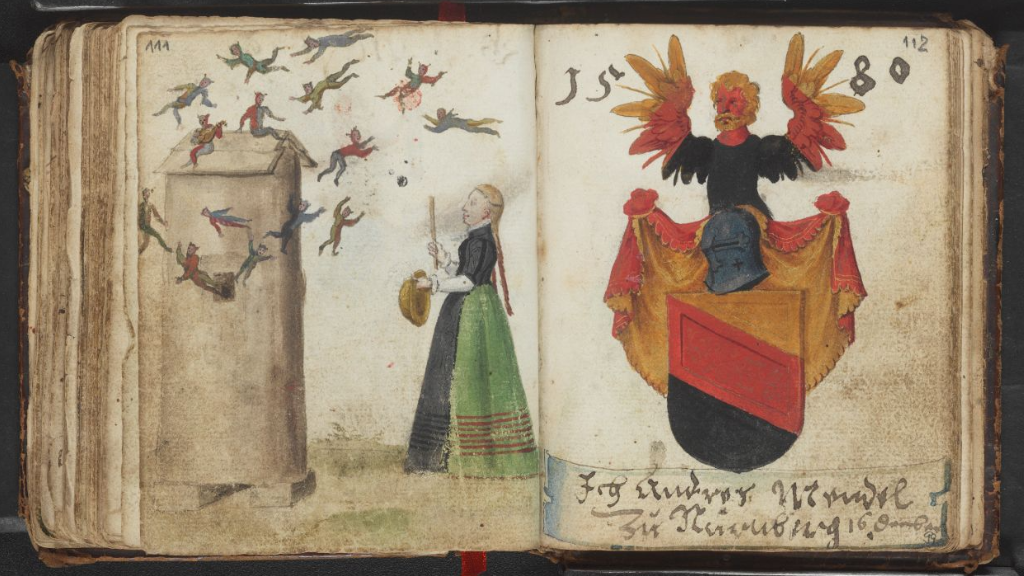 111
112
15 80
Ich Andres Mendel
Zu Nurmberg 16